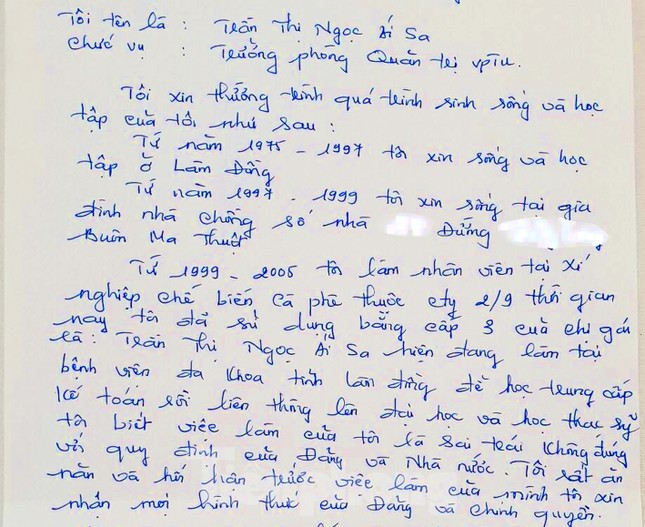 Tôi tên là : Trần Thị Ngọc Ái Sa
Chức vụ : Trưởng phòng Quản trị VPTU.
Tôi xin tường trình quá trình sinh sống và học
tập của tôi như sau :
Từ năm 1975 - 1997 tôi xin sống và học
tập ở Lâm Đồng
Từ năm 1997 - 1999 tôi xin sống tại gia
đình nhà chồng số nhà Đường
Buôn Ma Thuột
Từ 1999 - 2005 tôi làm nhân viên tại Xí
nghiệp chế biến Cà phê thuộc cty 2/9 thời gian
này tôi đã sử dụng bằng cấp 3 của chị gái
là : Trần Thị Ngọc Ái Sa hiện đang làm tại
bệnh viên đa khoa tỉnh lâm đồng để học trung cấp
kế toán rồi liên thông lên đại học và học thạc sỹ
tôi biết việc làm của tôi là sai trái không đúng
với quy định của Đảng và Nhà nước. Tôi rất ăn
năn và hối hận trước việc làm của mình tôi xin
nhận mọi hình thức của Đảng và chính quyền.